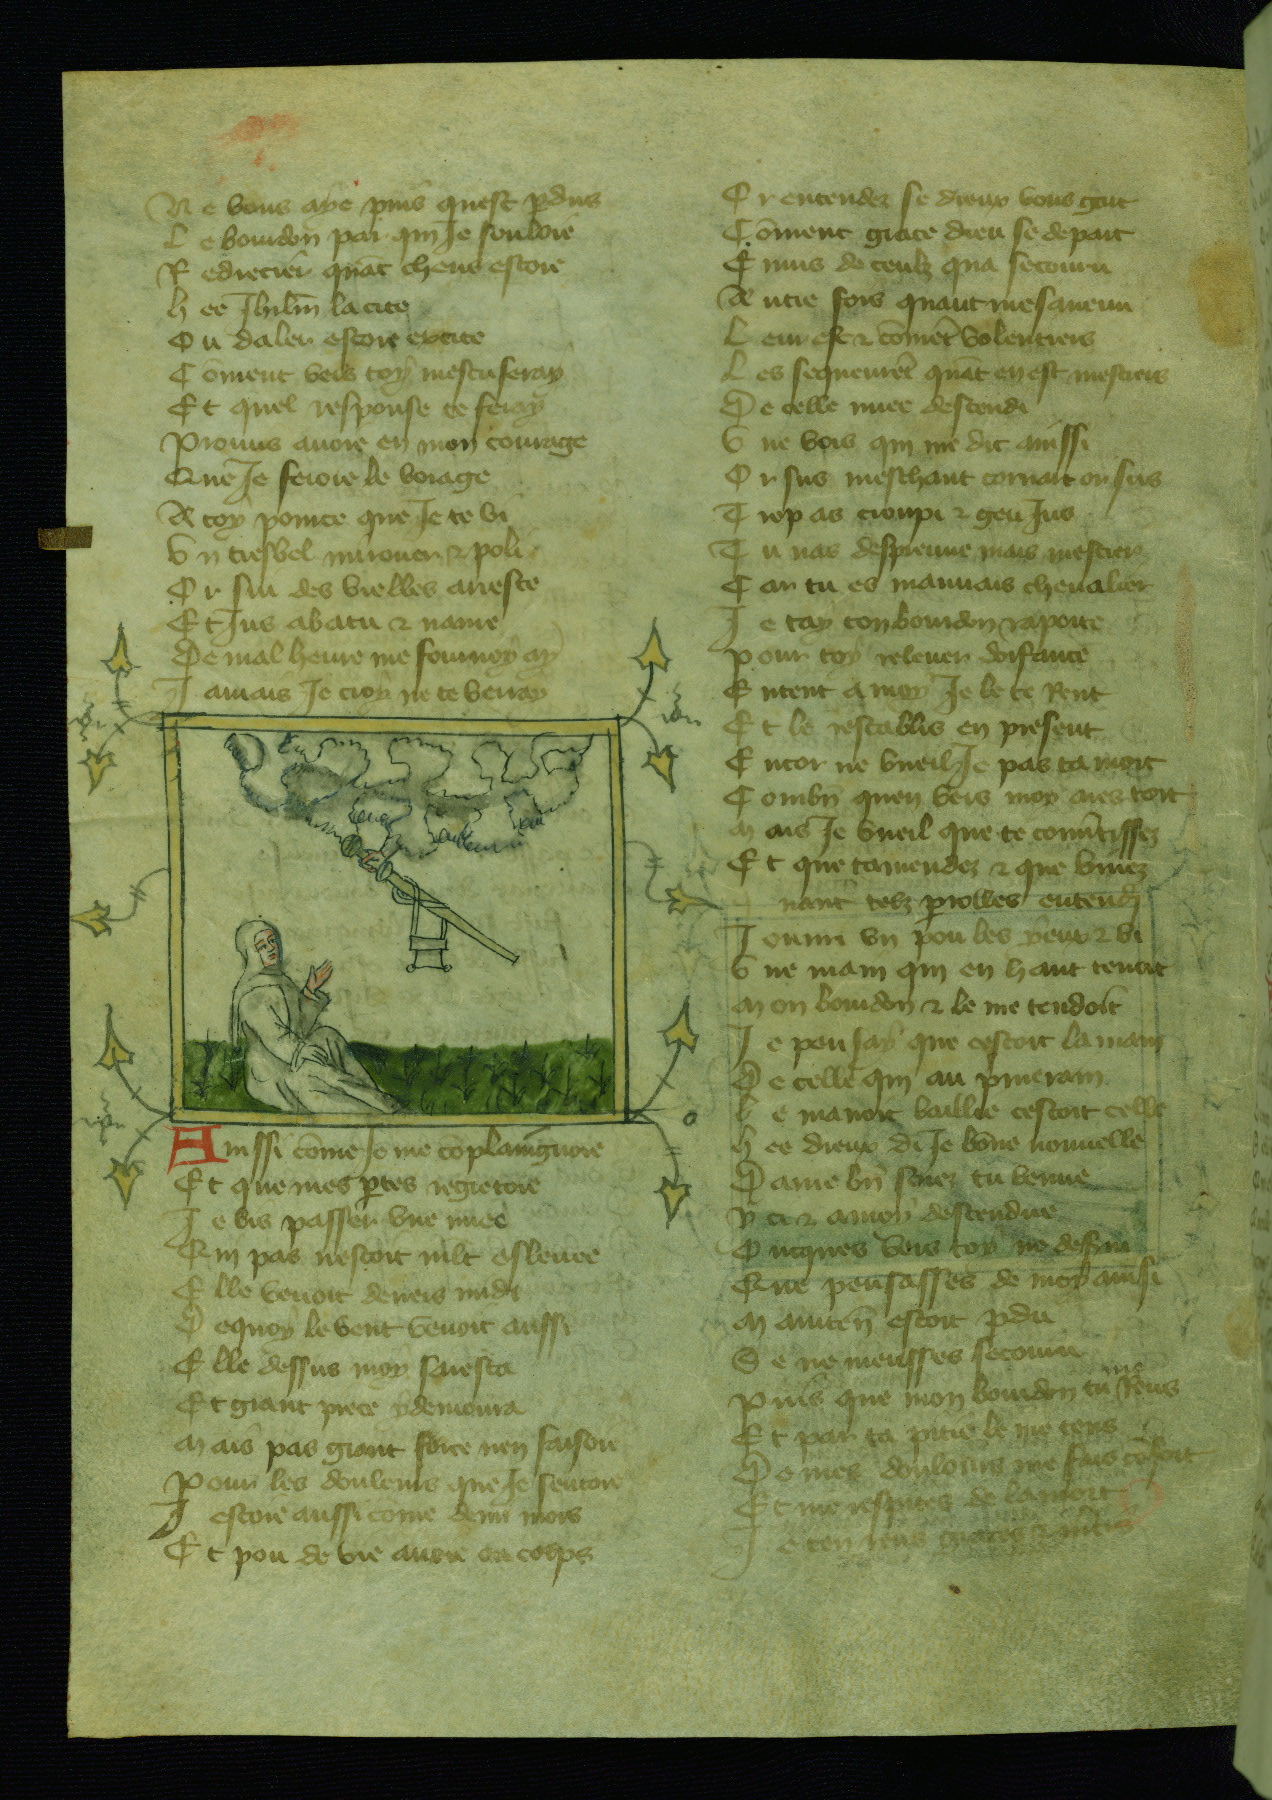 Ne vous aye puis quest pdus
Le bourdon par qui Je souloie
Redrecier quāt cheus estoie
hee Jhrlm̄ la cite
Ou daler estoie excite
Cōment vers toy mescuseray
Et quel response te feray
Promis auoie en mon courage
Que Je feroie le voiage
A toy pource que Je te vi
Vn tresbel mirouer & poli
Or sui des vielles areste
Et Jus abatu & naure
De mal heure me fouruoy ay
Jamais Je croy ne te verray
Ainssi cōme Je me cōplaingnoie
Et que mes ptes regretoie
Je vis passer vne nuee
Qui pas nestoit mlt esleuee
Elle venoit deuers midi
De quoy le vent venoit aussi
Elle dessus moy saresta
Et grant piece y demoura
Mais pas grant force nen faisoie
Pour les douleurs que Je sentoie
Jestoie aussi come demi mors
Et pou de vie auoie ou corps
Or entendez se dieux vous gart
Cōment grace dieu se depart
Enuis de ceulz qua secouru
Autre fois quant mesaueuu
Leur est & cōmēt volentiers
Les sequeurēt quāt en est mestiers
De celle nuee descendi
Vne vois qui me dit aussi
Or sus meschant couart or sus
Trop as croupi & geu Jus
Tu nas despreuue mais mestier
Car tu es mauuais cheualier
Je tay ton bourdon raporte
Pour toy releuer doifance
Entent a moy Je le te Rent
Et le restablis en present
Encor ne vueil Je pas ta mort
Combn̄ quen vers moy aies tort
Mais Je vueil que te conutissez
Et que tamendez & que viuez
nant telz prolles entendi
Jouuri vn pou les yeux & vi
Vne main qui en haut tenoit
Mon bourdon & le me tendoit
Je pensay que cestoit la main
De celle qui au pmerain
Le mauoit baillie cestoit celle
hee dieux di Je bōne nouuelle
Dame bn̄ soiez tu venue
Y ci & a moy descendue
Oncques vers toy ne desserui
Que pensasses de moy ainsi
Mainten̄ estoie pdu
Se ne meusses secouru
Puis que mon bourdon tu me Rens
Et par ta pitie le me tens
De mes doulours me fais cōfort
Et me respites de la mort
Je ten rens graces & m̄cis